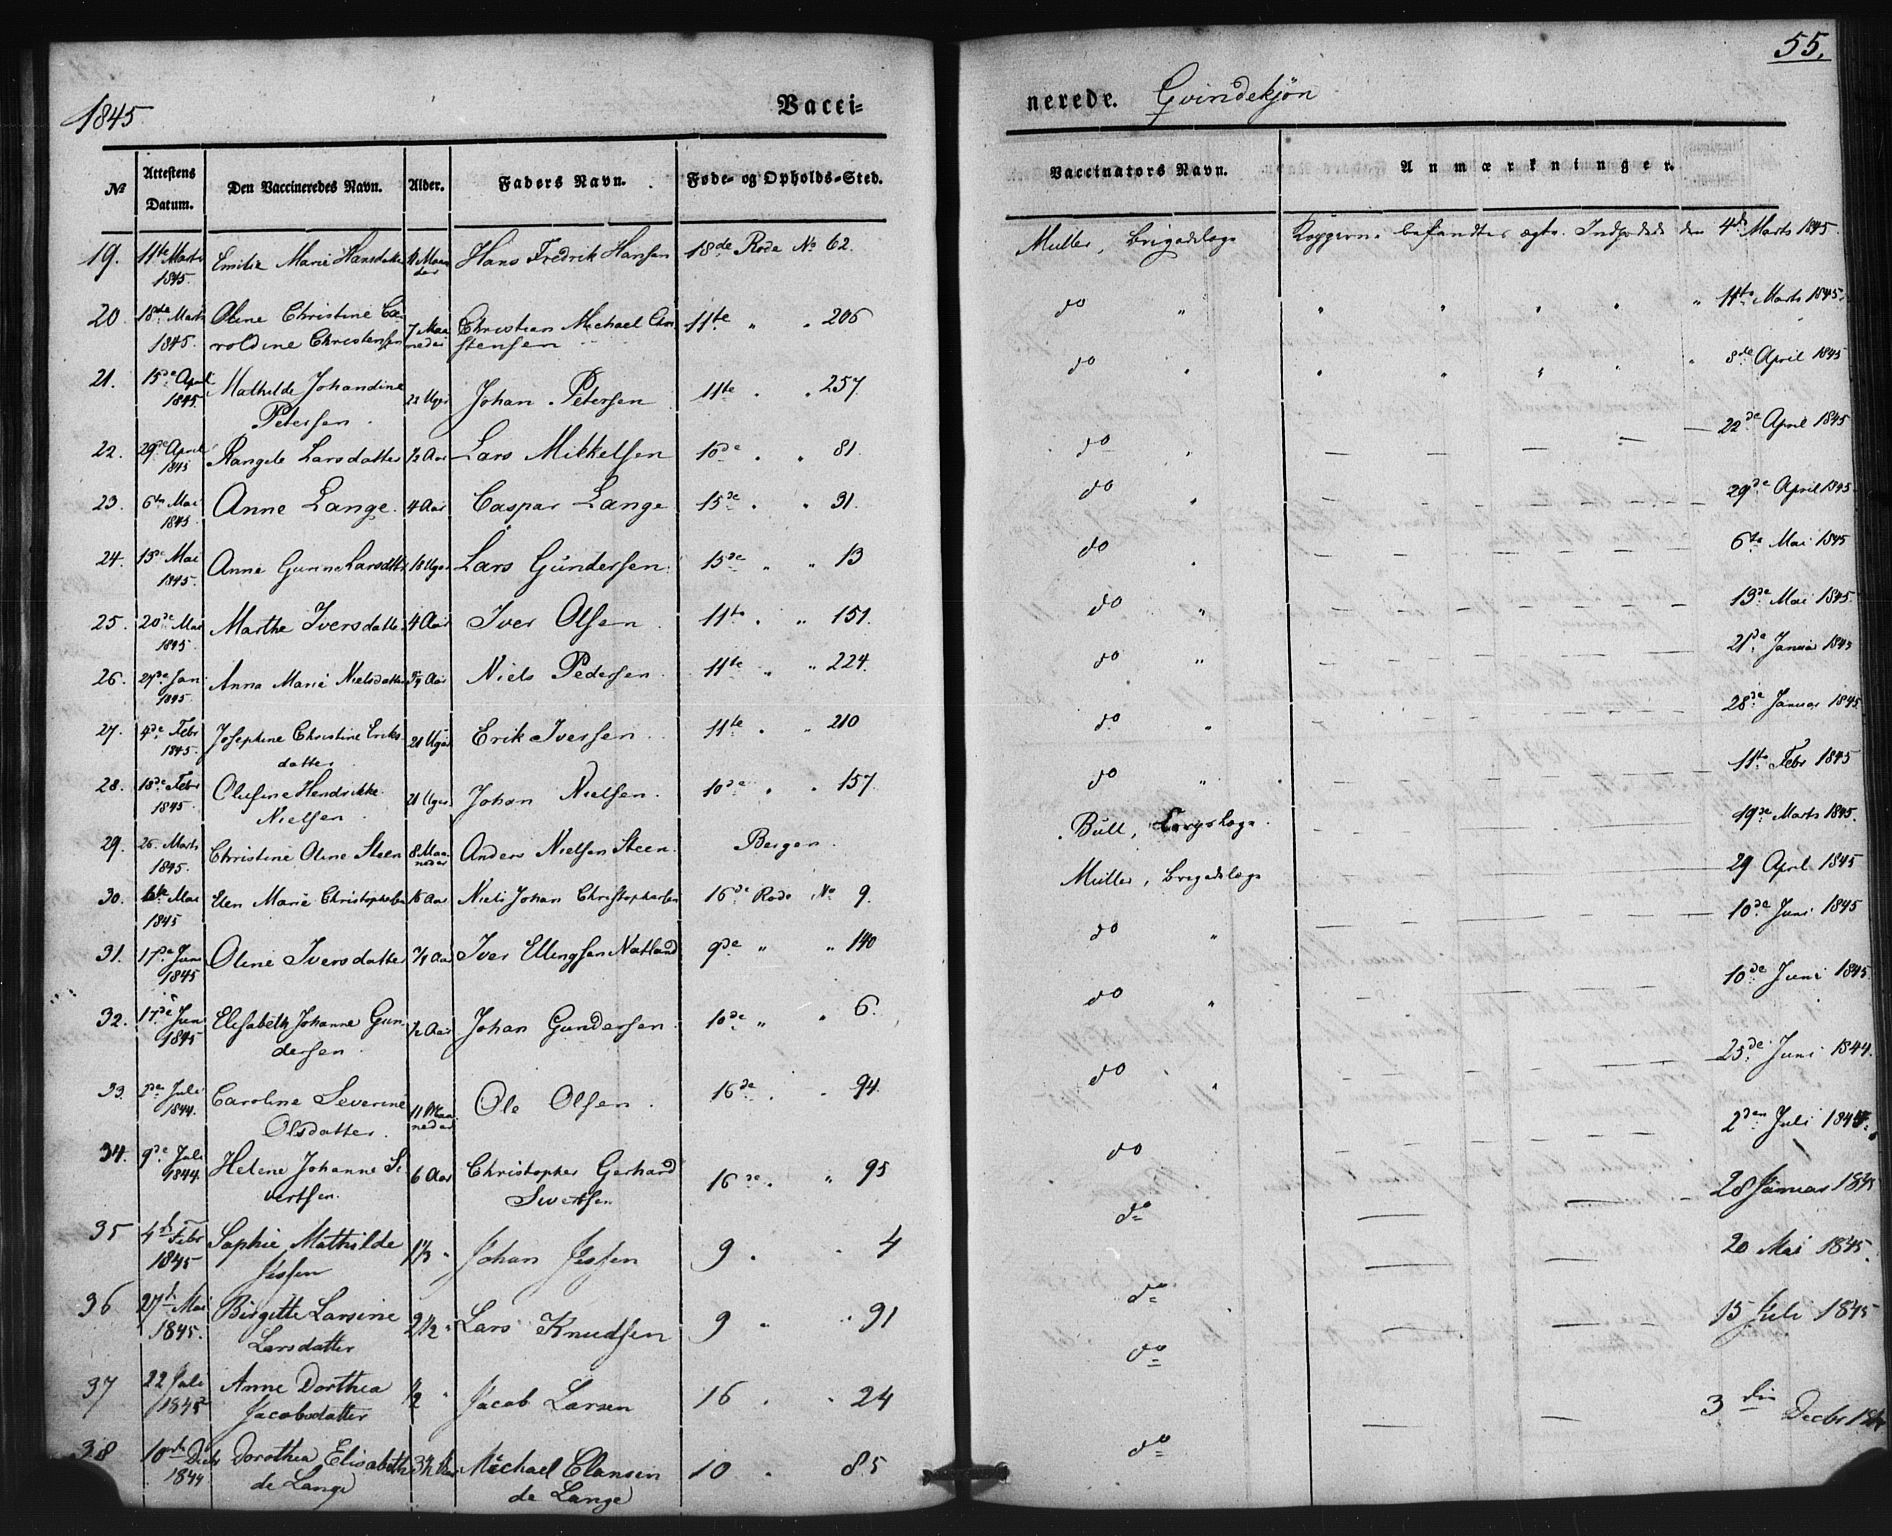 55.
1845
Vacci=
nerede. Qvindekjøn
№ Attestens Datum. Den Vaccineredes Navn. Alder. Faders Navn. Føde- og Opholds-Sted. Vaccinators Navn. Anmærkninger.
19. 11te Marts 1845. Emilie Marie Hansdatter 11 Maaneder Hans Fredrik Hansen 18de Rode No 62. Muller, Brigadelæge Kopperne befandtes ægte. Indpodede den 4de Marts 1845.
20 18de Marts 1845. Oline Christine Caroldine Christensen 7 Maaneder Christian Michael Christensen 11te " " 206 do " 11te Marts 1845.
21. 15de April 1845. Mathilde Johandine Petersen 22 Uger Johan Petersen 11te " " 257. do " 8de April 1845
22. 29de April 1845 Rangele Larsdatter 1/2 Aar Lars Mikkelsen 10de " " 81. do " 22de April 1845
23. 6te Mai 1845. Anne Lange. 4 Aar Caspar Lange 15de " " 31. do " 29de April 1845.
24. 13de Mai 1845. Anne Gurine Larsdatter 18 Uger Lars Gundersen. 15de " " 13 do " 6te Mai 1845
25. 20de Mai 1845. Marthe Iversdatter 4 Aar Iver Olsen 11te " " 151. do " 13de Mai 1845.
26. 28de Jan 1845. Anna Marie Nielsdatter Aar Niels Pedersen 11te " " 224. do " 21de Januar 1845
27. 4de Febr 1845. Josephine Christine Eriksdatter 21 Uger Erik Iversen 11te " " 210 do " 28de Januar 1845.
28. 18de Febr 1845. Olufine Hendrikke Nielsen 21 Uger Johan Nielsen. 10de " " 157. do " 11te Febr 1845
29. 26. Marts 1845. Christine Oline Steen 8 Maaneder Anders Nielsen Steen. Bergen. Bull, Corpslæge. 19de Marts 1845.
30. 6te Mai 1845 Elen Marie Christophersen Aar Niels Johan Christophersen 16de Rode No 9. Muller, Brigadelæge 29 April 1845
31. 17de Juni 1845 Oline Iversdatter 3/4 Aar Iver Ellingsen Natland 9de " " 140 do " 10de Juni 1845
32. 17de Juni 1845 Elisabeth Johanne Gundersen 1/2 Aar Johan Gundersen. 10de " " 6. do " 10de Juni 1845.
33. 2de Juli 1844. Caroline Severine Olsdatter. 11 Maaneder Ole Olsen 16de " " 94. do " 25de Juni 1844.
34. 9de Juli 1844. Helene Johanne Sivertsen. 6 Aar Christopher Gerhard Sivertsen 16de " " 95 do 2den Juli 1844.
35 4de Febr 1845 Sophie Mathilde Jessen 1 1/3 " Johan Jessen 9 " " 4 do 28 Januar 1845
36 27de Mai 1845. Birgitte Larsine Larsdatter 2 1/2 " Lars Knudsen 9 " " 91 do 20 Mai 1845.
37 22 Juli 1845 Anne Dorthea Jacobsdatter 1/2 " Jacob Larsen 16 " " 24 do 15 Juli 1845
38 10nde Decbr 1844 Dorothea Elisabeth de Lange 3 1/2 Aar Michael Clansen de Lange 10 " 85 do 3die Decbr